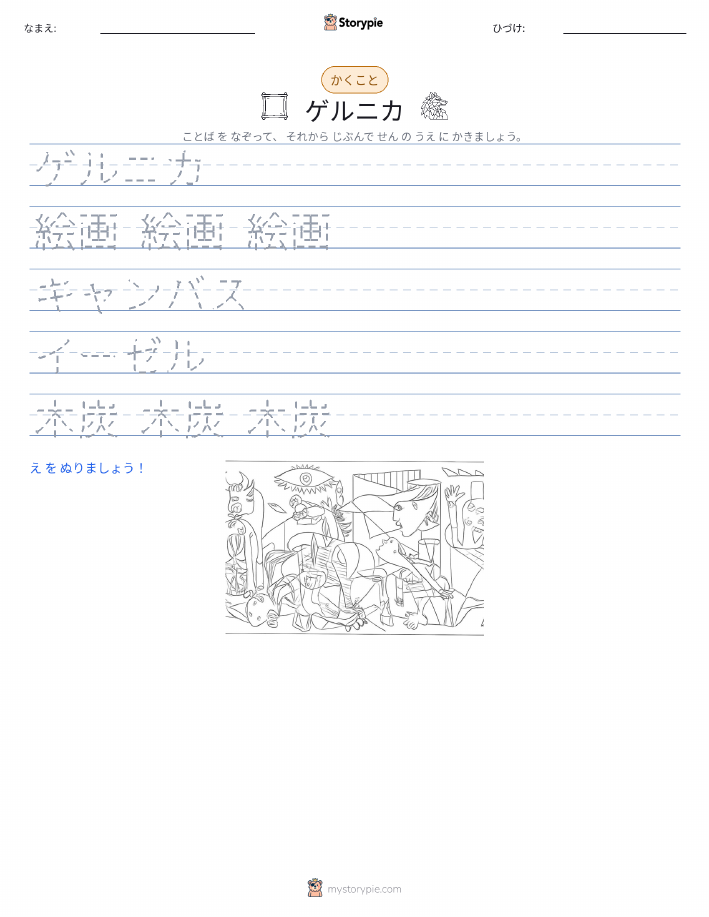 なまえ:
Storypie
ひづけ:
かくこと
ゲルニカ
ことば を なぞって、 それから じぶんで せん の うえ に かきましょう。
ゲルニカ
絵画 絵画 絵画
キャンバス
イーゼル
木炭 木炭 木炭
え を ぬりましょう！
mystorypie.com